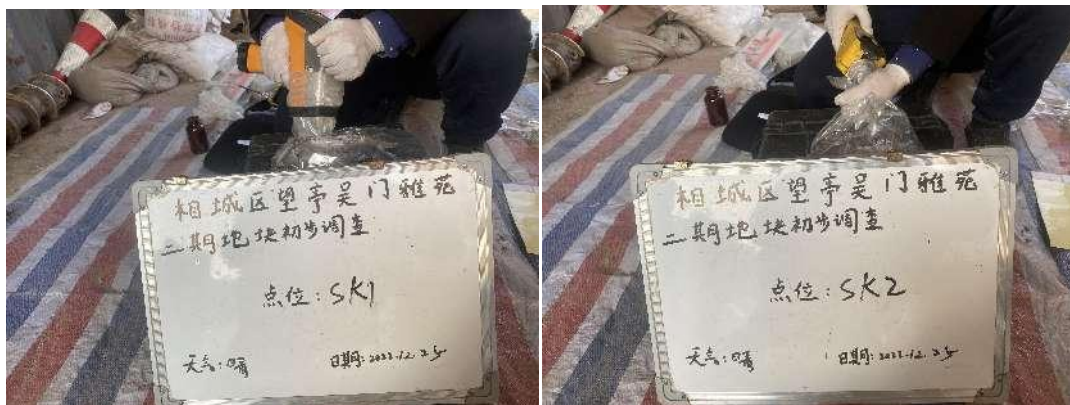 相城区望亭吴门雅苑
二期地块初步调查
点位：SK1
天气：晴
日期：2022.12.25
相城区望亭吴门雅苑
二期地块初步调查
点位：SK2
天气：晴
日期：2022.12.25